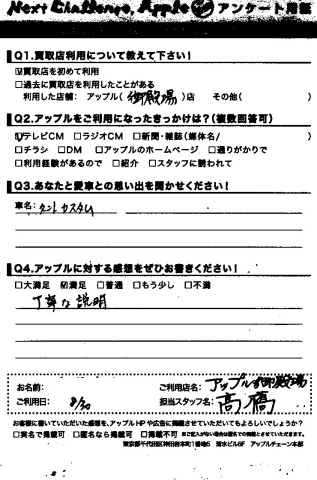 Next Challenge, Apple アンケート用紙
Q1.買取店利用について教えて下さい！
☑買取店を初めて利用
□過去に買取店を利用したことがある
利用した店舗： アップル（ 御殿場 ）店 その他（ ）
Q2.アップルをご利用になったきっかけは？（複数回答可）
☑テレビCM □ラジオCM □新聞・雑誌（媒体名/ ）
□チラシ □DM □アップルのホームページ □通りがかりで
□利用経験があるので □紹介 □スタッフに誘われて
Q3.あなたと愛車との思い出を聞かせください！
車名： タントカスタム
Q4.アップルに対する感想をぜひお書きください！
□大満足 ☑満足 □普通 □もう少し □不満
丁寧な説明
お名前：
ご利用店名： アップル御殿場
ご利用日： 8/30
担当スタッフ名： 高橋
お客様に書いていただいた感想を、アップルHPや広告に掲載させていただいてもよろしいでしょうか？
□実名で掲載可 □匿名なら掲載可 □掲載不可 ※ご記入がない場合は匿名での掲載とさせていただきます。
東京都千代田区神田岩本町1番地5 清水ビル5F アップルチェーン本部